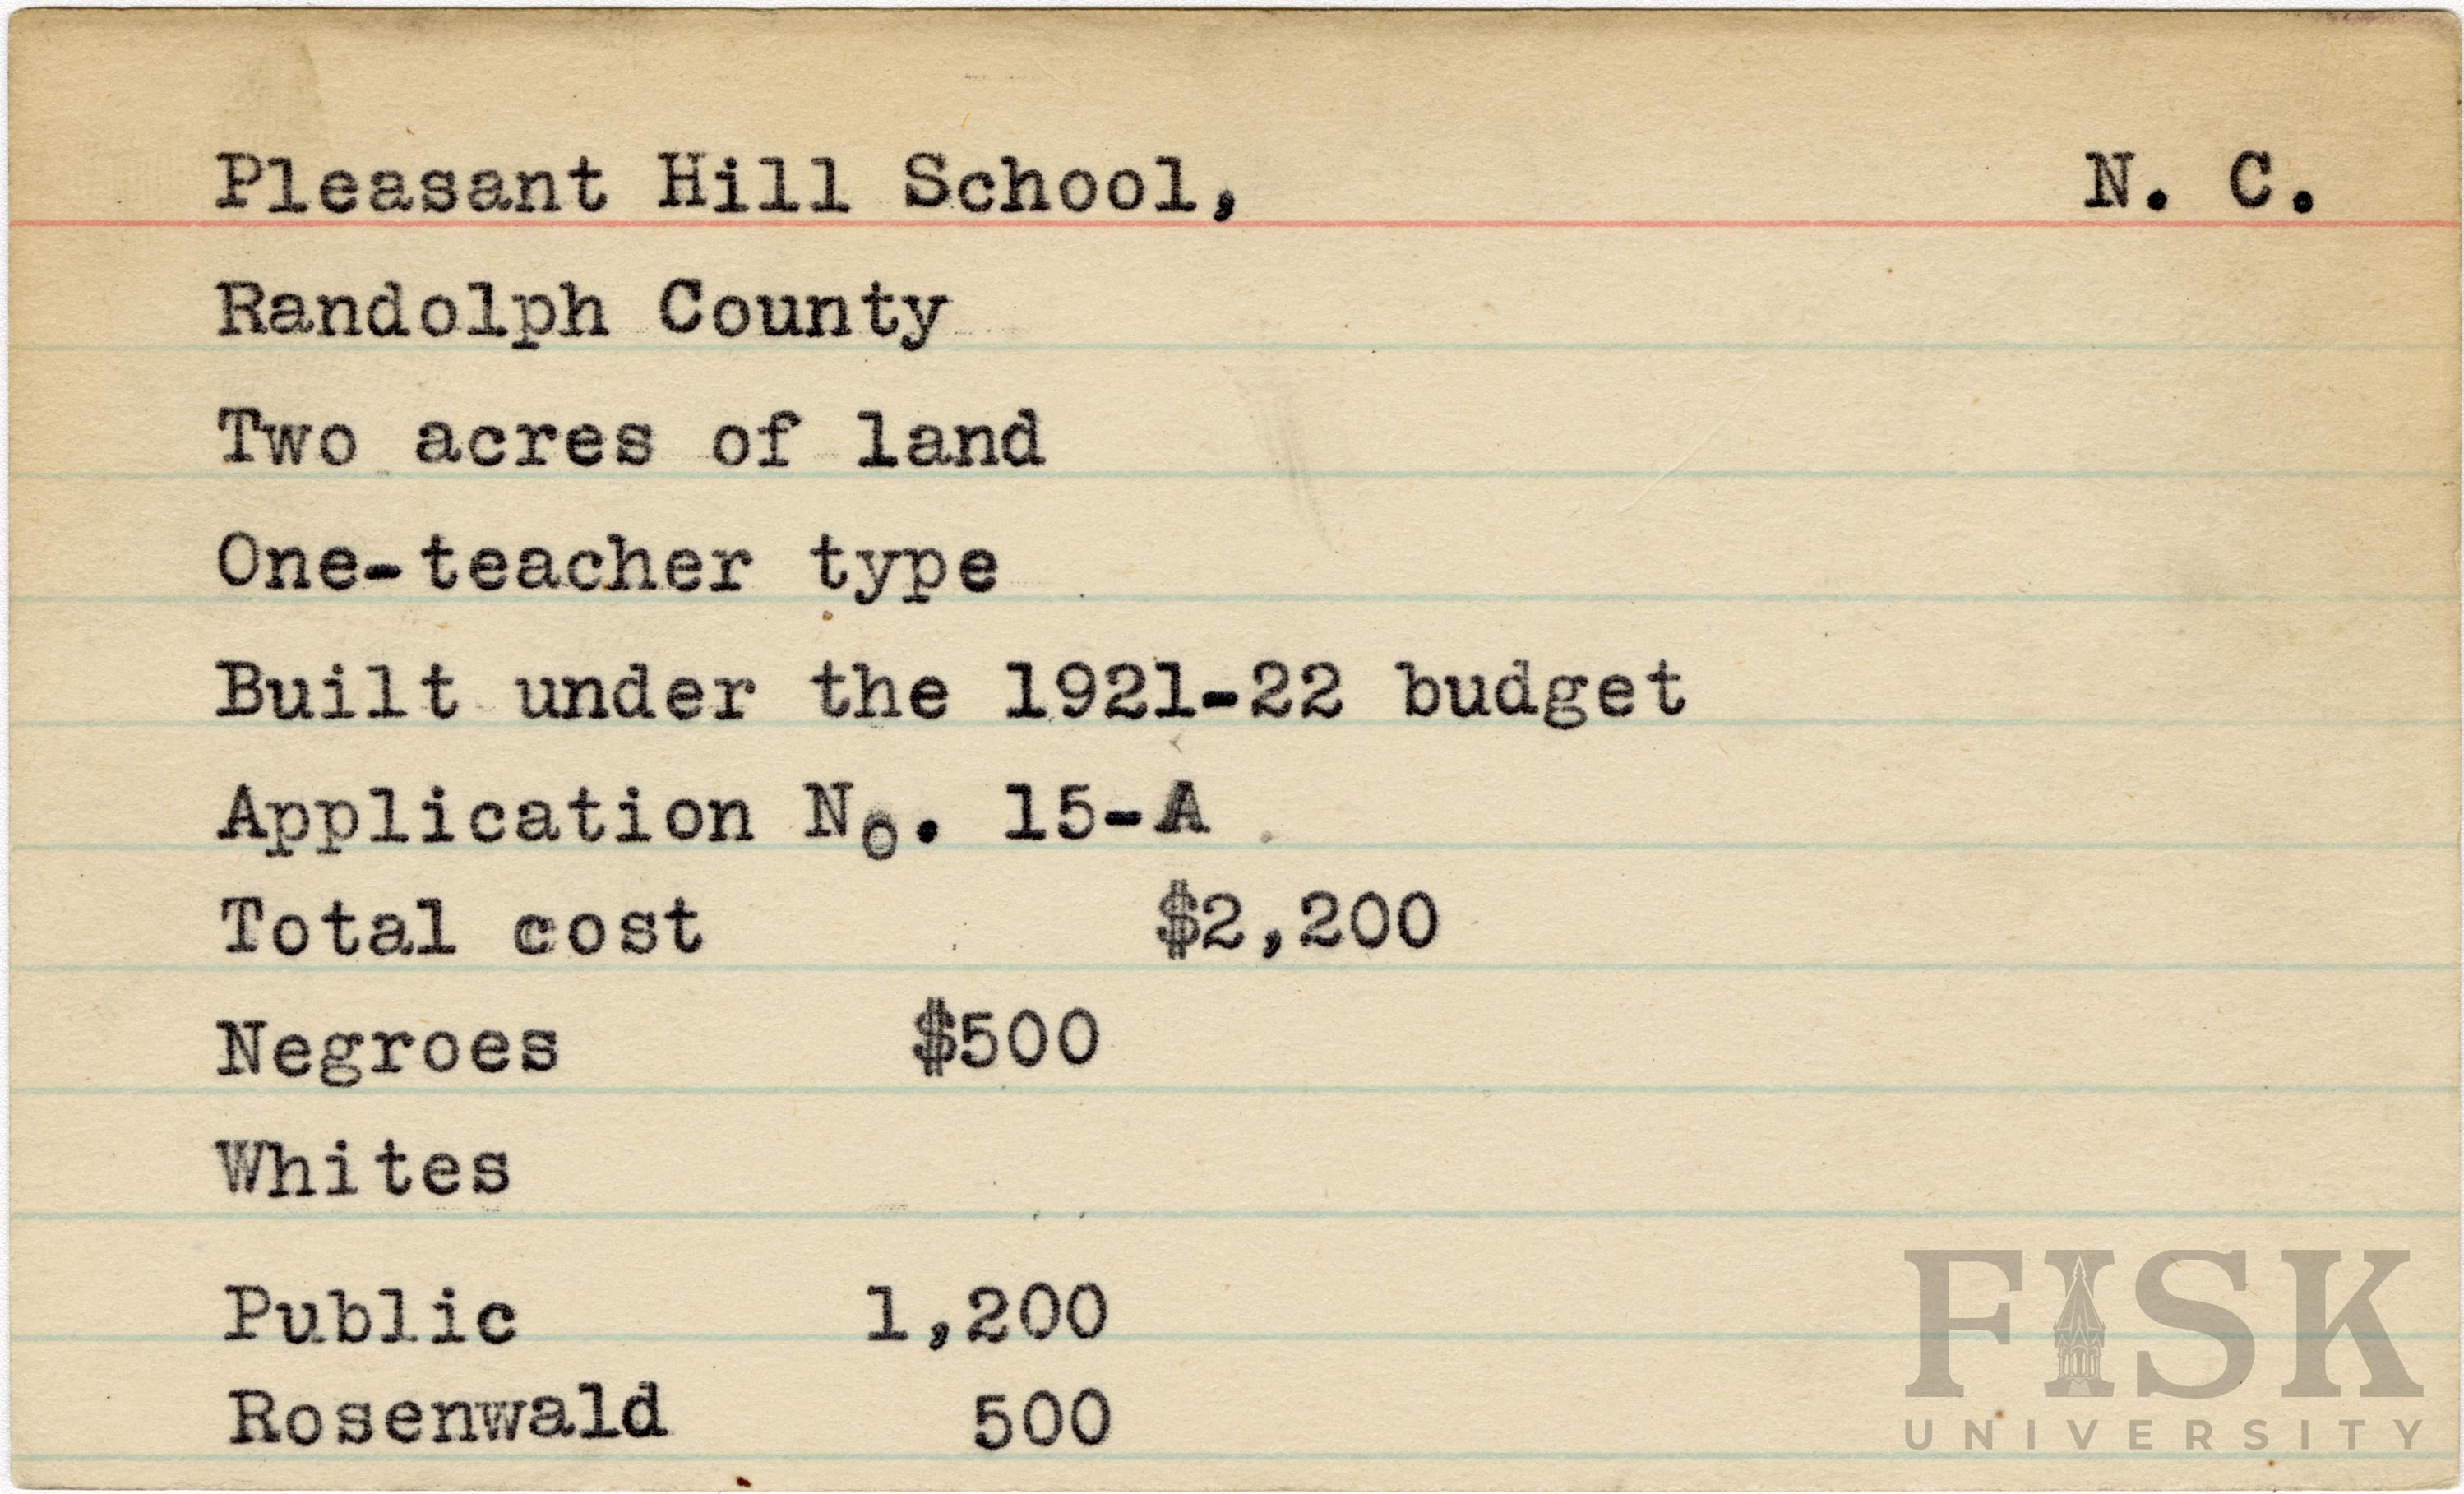 Pleasant Hill School, N. C.
Randolph County
Two acres of land
One-teacher type
Built under the 1921-22 budget
Application No. 15-A
Total cost $2,200
Negroes $500
Whites
Public 1,200
Rosenwald 500
FISK
UNIVERSITY